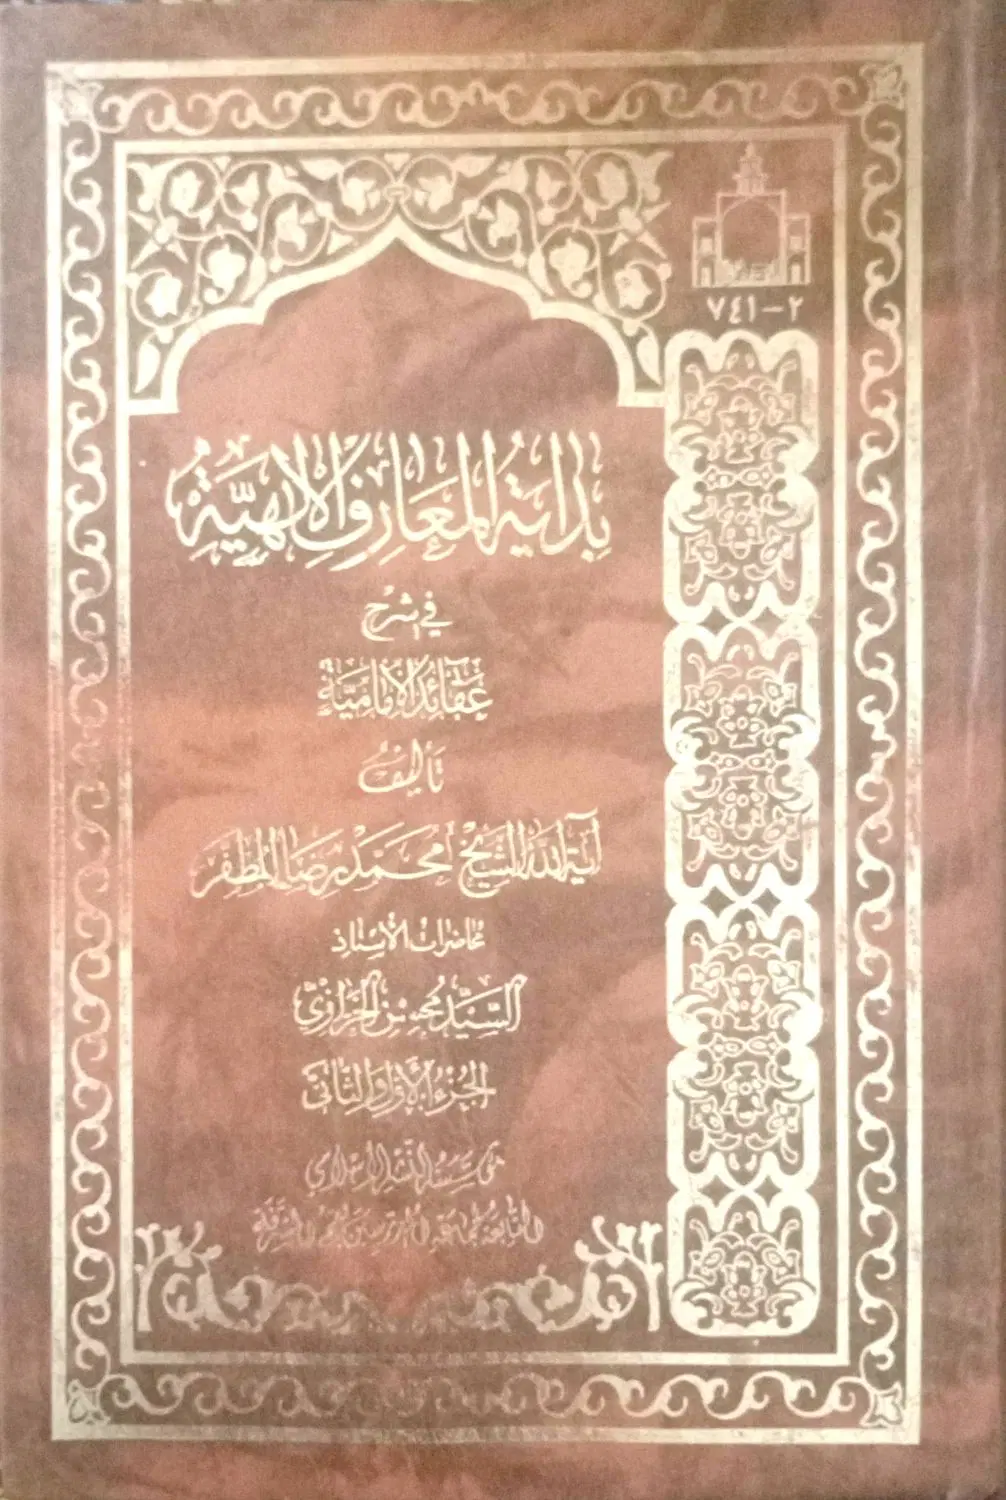 ٧٤١-٢
بداية المعارف الإلهية
في شرح
عقائد الإمامية
تأليف
آية الله الشيخ محمد رضا المظفر
محاضرات الأستاذ
السيد محسن الخرازي
الجزء الأول والثاني
مؤسسة النشر الإسلامي
التابعة لجماعة المدرسين بقم المشرفة